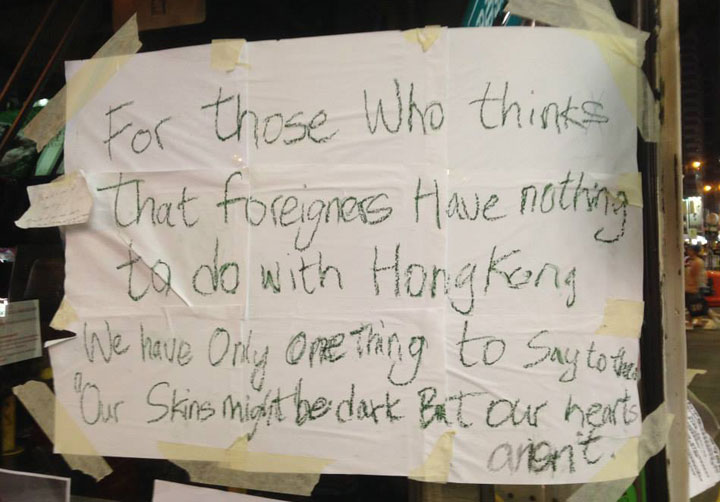 For those Who thinks
that foreigners Have nothing
to do with HongKong
We have Only one Thing to Say to them
"Our Skins might be dark But our hearts
aren't.